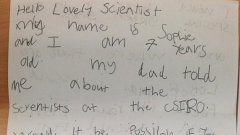 Hello Lovely Scientist
my name is Sophie
and I am 7 years
old my dad told
me about the
scientists at the CSIRO.
would it be Possible if You